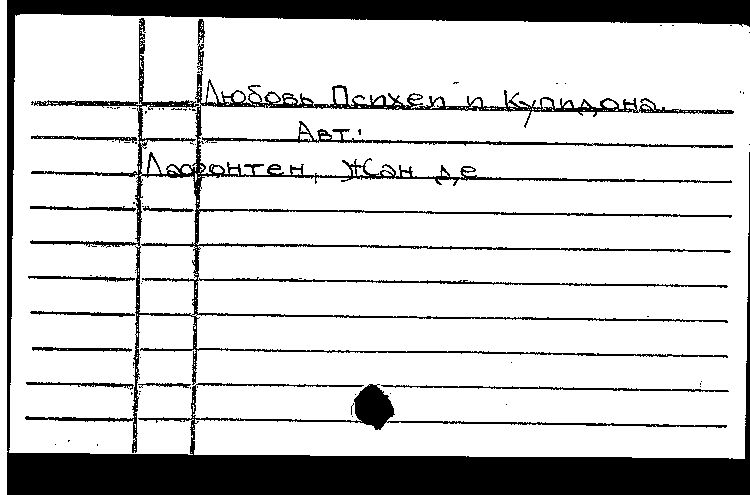 Любовь Психеи и Купидона.
Авт.:
Лафонтен, Жан де